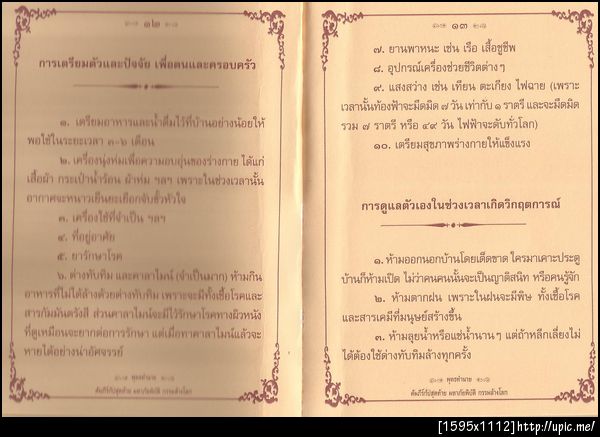 ๑๒
การเตรียมตัวและปัจจัย เพื่อตนและครอบครัว
๑. เตรียมอาหารและน้ำดื่มไว้ที่บ้านอย่างน้อยให้
พอใช้ในระยะเวลา ๓-๖ เดือน
๒. เครื่องนุ่งห่มเพื่อความอบอุ่นของร่างกาย ได้แก่
เสื้อผ้า กระเป๋าน้ำร้อน ผ้าห่ม ฯลฯ เพราะในช่วงเวลานั้น
อากาศจะหนาวเย็นยะเยือกจับขั้วหัวใจ
๓. เครื่องใช้ที่จำเป็น ฯลฯ
๔. ที่อยู่อาศัย
๕. ยารักษาโรค
๖. ด่างทับทิม และคาลาไมน์ (จำเป็นมาก) ห้ามกิน
อาหารที่ไม่ได้ล้างด้วยด่างทับทิม เพราะจะมีทั้งเชื้อโรคและ
สารกัมมันตรังสี ส่วนคาลาไมน์จะมีไว้รักษาโรคทางผิวหนัง
ที่ดูเหมือนจะยากต่อการรักษา แต่เมื่อทาคาลาไมน์แล้วจะ
หายได้อย่างน่าอัศจรรย์
พุทธทำนาย
คัมภีร์กัปสุดท้าย มหาภัยพิบัติ กรรมล้างโลก
๑๓
๗. ยานพาหนะ เช่น เรือ เสื้อชูชีพ
๘. อุปกรณ์เครื่องช่วยชีวิตต่างๆ
๙. แสงสว่าง เช่น เทียน ตะเกียง ไฟฉาย (เพราะ
เวลานั้นท้องฟ้าจะมืดมิด ๗ วัน เท่ากับ ๑ ราตรี และจะมืดมิด
รวม ๗ ราตรี หรือ ๔๙ วัน ไฟฟ้าจะดับทั่วโลก)
๑๐. เตรียมสุขภาพร่างกายให้แข็งแรง
การดูแลตัวเองในช่วงเวลาเกิดวิกฤตการณ์
๑. ห้ามออกนอกบ้านโดยเด็ดขาด ใครมาเคาะประตู
บ้านก็ห้ามเปิด ไม่ว่าคนคนนั้นจะเป็นญาติสนิท หรือคนรู้จัก
๒. ห้ามตากฝน เพราะในฝนจะมีพิษ ทั้งเชื้อโรค
และสารเคมีที่มนุษย์สร้างขึ้น
๓. ห้ามลุยน้ำหรือแช่น้ำนานๆ แต่ถ้าหลีกเลี่ยงไม่
ได้ต้องใช้ด่างทับทิมล้างทุกครั้ง
พุทธทำนาย
คัมภีร์กัปสุดท้าย มหาภัยพิบัติ กรรมล้างโลก
[1595x1112]http://upic.me/